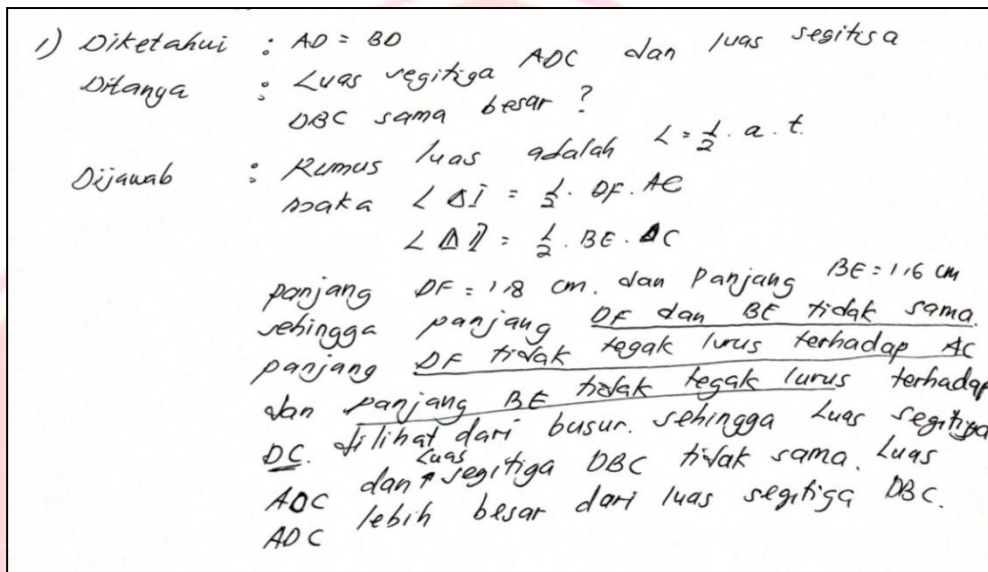 1) Diketahui : AD = BD
Ditanya : Luas segitiga ADC dan luas segitiga
DBC sama besar ?
Dijawab : Rumus luas adalah L = 1/2 . a . t.
maka L Δ I = 1/2 . DF . AC
L Δ II = 1/2 . BE . DC
panjang DF = 1,8 cm. dan Panjang BE = 1,6 cm
sehingga panjang DF dan BE tidak sama.
panjang DF tidak tegak lurus terhadap AC
dan panjang BE tidak tegak lurus terhadap
DC. dilihat dari busur. sehingga Luas segitiga
ADC dan Luas segitiga DBC tidak sama. Luas
ADC lebih besar dari luas segitiga DBC.